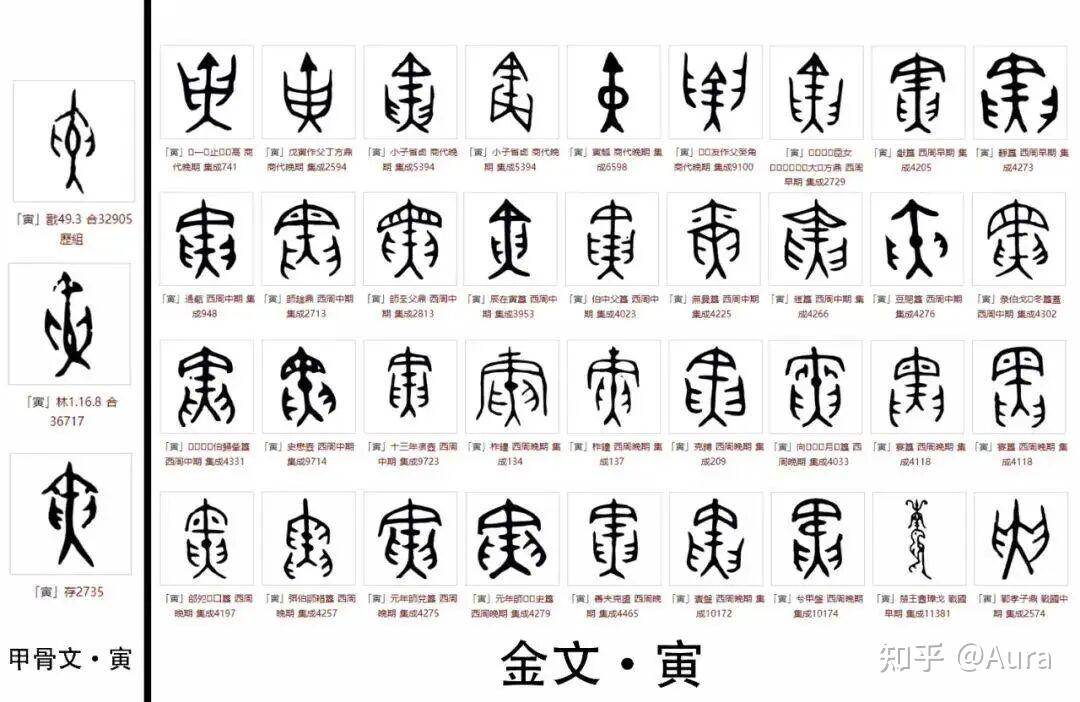 「寅」戬49.3 合32905
歷組
「寅」林1.16.8 合
36717
「寅」存2735
甲骨文·寅
「寅」一止鬲 商
代晚期 集成741
「寅」戊寅作父丁方鼎
商代晚期 集成2594
「寅」小子省卣 商代晚
期 集成5394
「寅」小子省卣 商代晚
期 集成5394
「寅」寅觚 商代晚期 集
成6598
「寅」友作父癸角
商代晚期 集成9100
「寅」臣女
大方鼎 西周
早期 集成2729
「寅」簋 西周早期 集
成4205
「寅」簋 西周早期 集
成4273
「寅」遇甗 西周中期 集
成948
「寅」師鼎 西周中期
集成2713
「寅」師至父鼎 西周中
期 集成2813
「寅」辰在寅簋 西周中
期 集成3953
「寅」伯中父簋 西周中
期 集成4023
「寅」無㠱簋 西周中期
集成4225
「寅」簋 西周中期
集成4266
「寅」豆閉簋 西周中期
集成4276
「寅」彔伯冬簋蓋
西周中期 集成4302
「寅」伯歸夆簋
西周中期 集成4331
「寅」史懋壺 西周中期
集成9714
「寅」十三年壺 西周
中期 集成9723
「寅」柞鐘 西周晚期 集
成134
「寅」柞鐘 西周晚期 集
成137
「寅」克鎛 西周晚期 集
成209
「寅」向月簋 西
周晚期 集成4033
「寅」簋 西周晚期 集
成4118
「寅」簋 西周晚期 集
成4118
「寅」簋 西周
晚期 集成4197
「寅」弭伯師耤簋 西周
晚期 集成4257
「寅」元年師兌簋 西周
晚期 集成4275
「寅」元年師史簋
西周晚期 集成4279
「寅」善夫克盨 西周晚
期 集成4465
「寅」寰盤 西周晚期 集
成10172
「寅」兮甲盤 西周晚期
集成10174
「寅」楚王酓璋戈 戰國
早期 集成11381
「寅」鄲孝子鼎 戰國中
期 集成2574
金文·寅
知乎 @Aura